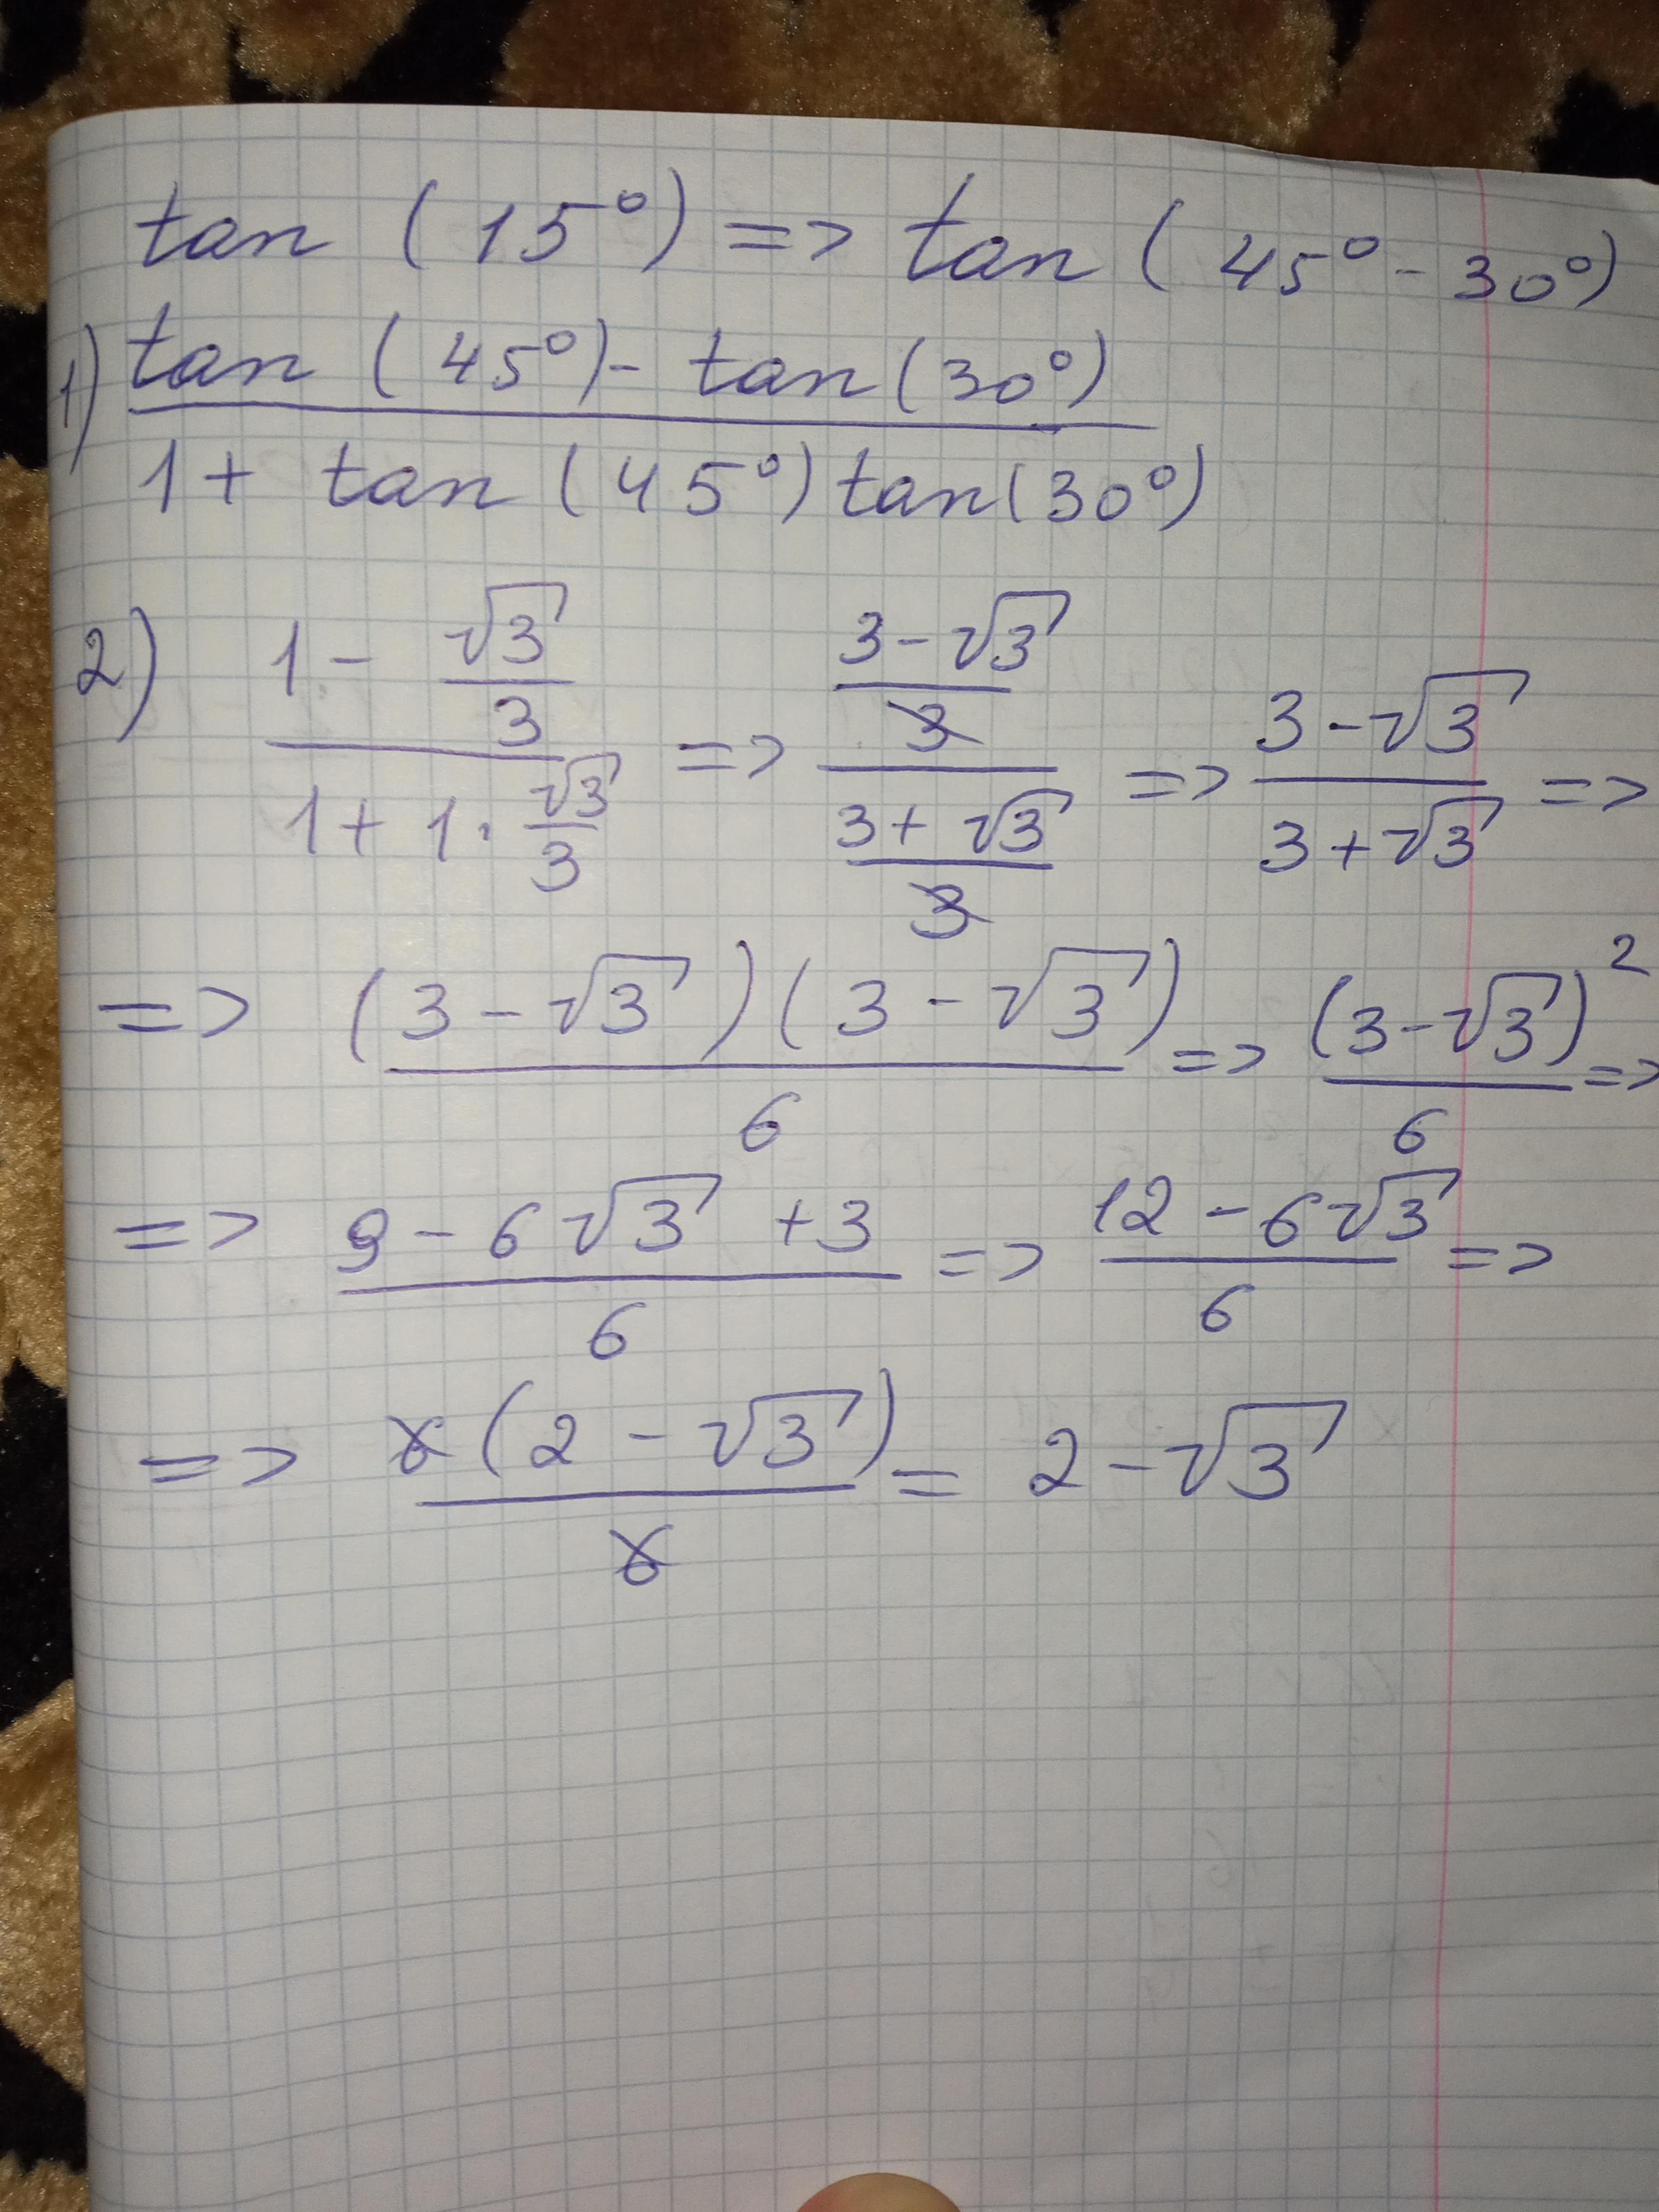 tan (15°) => tan (45° - 30°)
1) (tan (45°) - tan (30°)) / (1 + tan (45°) tan (30°))
2) (1 - √3/3) / (1 + 1 · √3/3) => ((3 - √3)/3) / ((3 + √3)/3) => (3 - √3) / (3 + √3) =>
=> ((3 - √3)(3 - √3)) / 6 => (3 - √3)² / 6 =>
=> (9 - 6√3 + 3) / 6 => (12 - 6√3) / 6 =>
=> 6(2 - √3) / 6 = 2 - √3